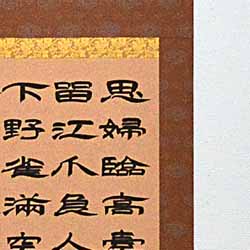 思婦臨高臺
留江介良人
下野雀滿空